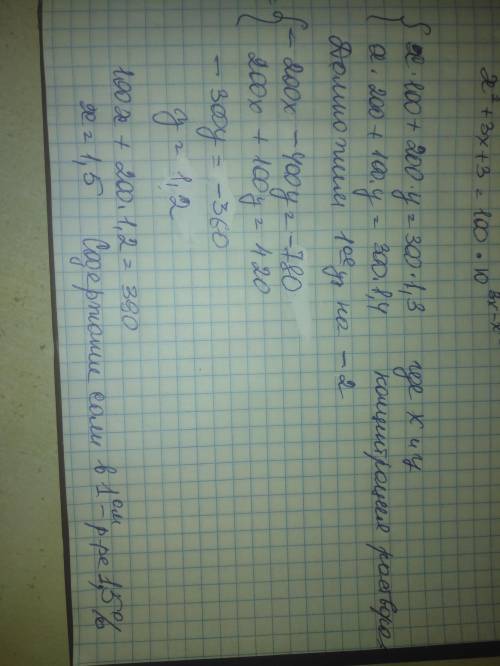 x² + 3x + 3 = 100 · 10
{ x · 100 + 200 · y = 300 · 1,3 где x и y
x · 200 + 100 · y = 300 · 1,4 концентрация раствора
Домножим 1ое ур на -2
{ - 200x - 400y = -780
200x + 100y = 420
- 300y = -360
y = 1,2
100x + 200 · 1,2 = 390
x = 1,5 Содержание соли в 1ом - р-ре 1,5%